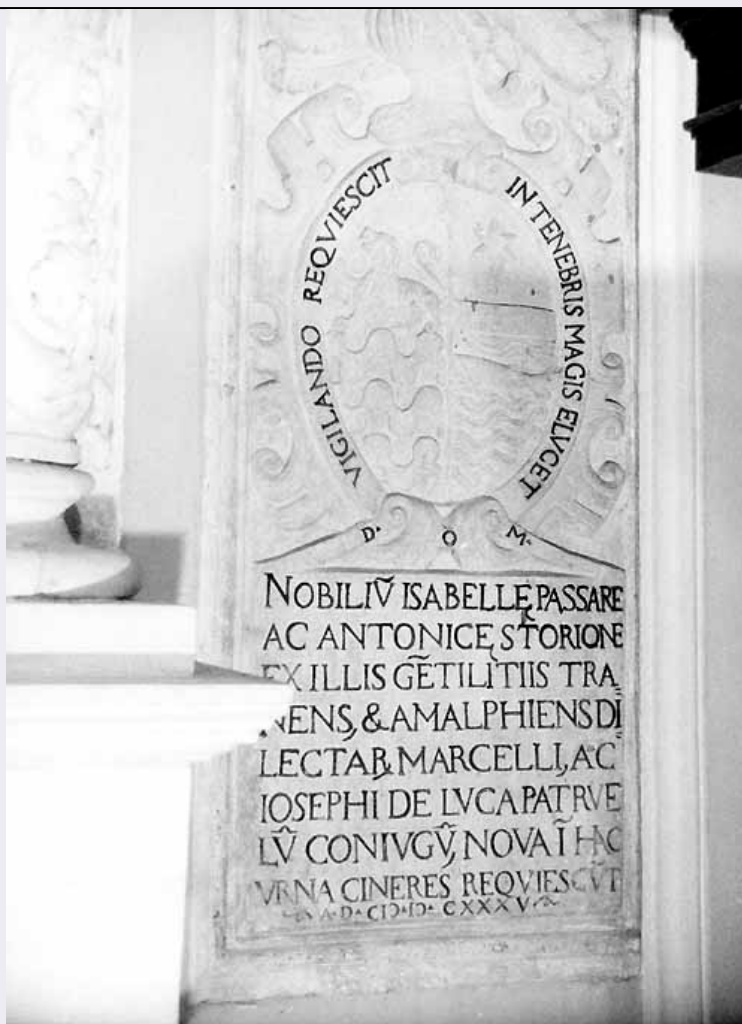 VIGILANDO REQVIESCIT
IN TENEBRIS MAGIS ELVCET
D. O M.
NOBILIṼ ISABELLĘ PASSARE
AC ANTONICĘ STORIONE
EX ILLIS GẼTILITIIS TRA
NENS, & AMALPHIENS DI
LECTAR MARCELLI, AC
IOSEPHI DE LVCA PATRVE
LV̂ CONIVGV̂, NOVA Ĩ HAC
VRNA CINERES REQVIESCṼT
A·D·CIↃ·IↃ·CXXXV